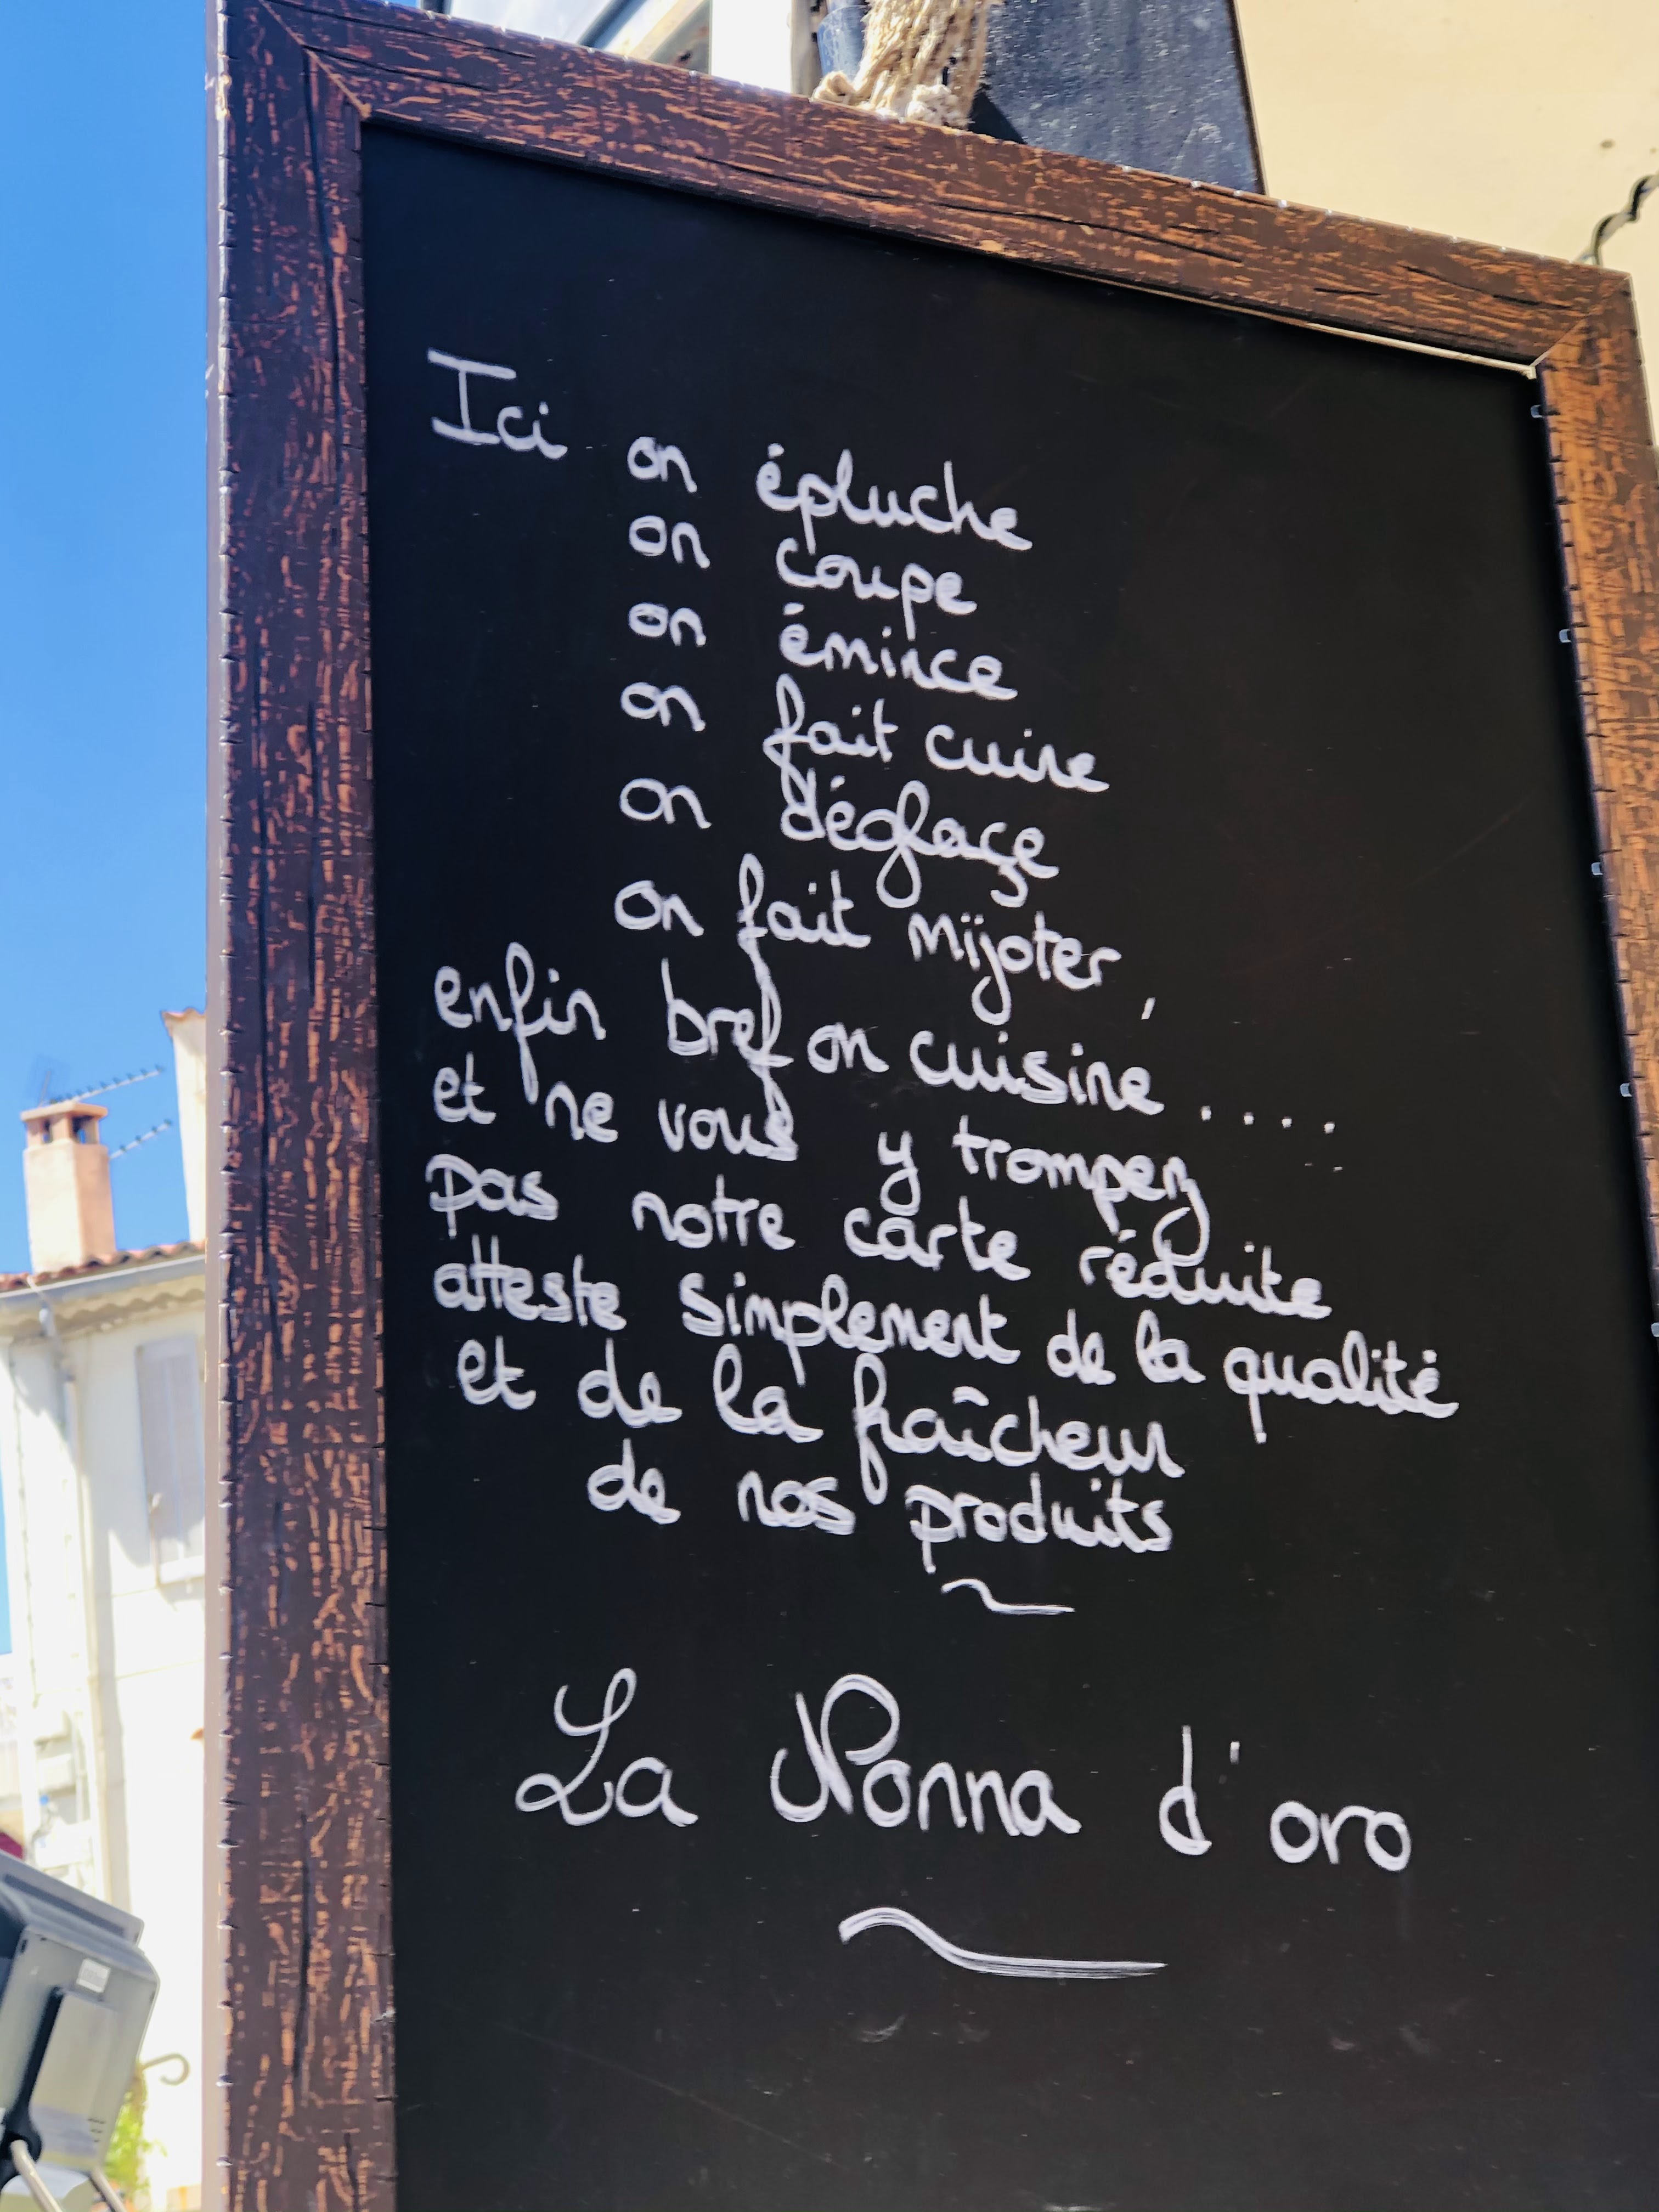 Ici on épluche
on coupe
on émince
on fait cuire
on déglaçe
on fait mijoter,
enfin bref on cuisine ....
et ne vous y trompez
pas notre carte réduite
atteste simplement de la qualité
et de la fraîcheur
de nos produits
~
La Nonna d'oro
~